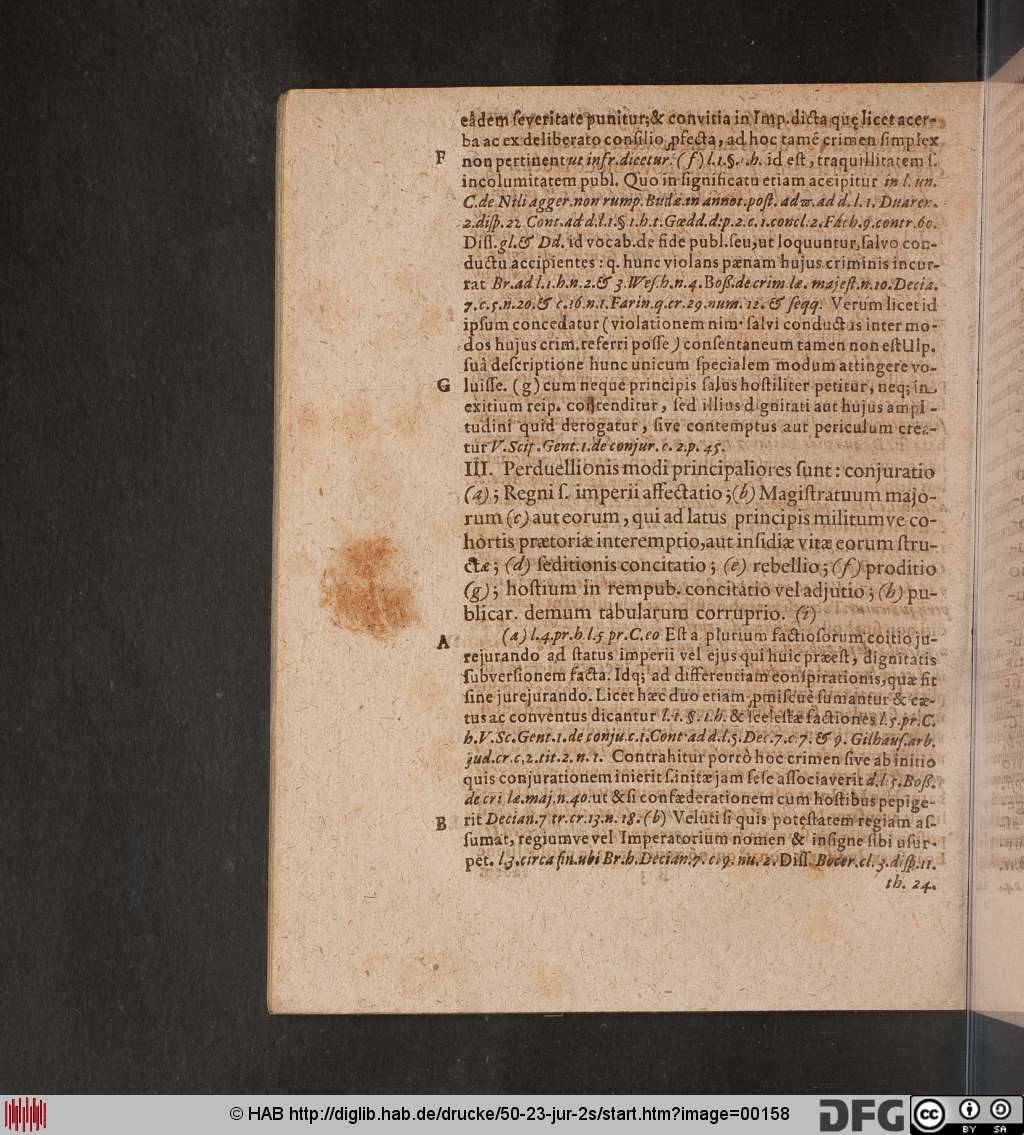 eâdem ſeveritate punitur;& convitia in Imp. dicta quę licet acer-
ba ac ex deliberato conſilio ꝓfecta, ad hoc tamẽ crimen ſimplex
F non pertinent ut infr. dicetur. (f) l.1.§.1.h. id eſt, traquillitatem ſ.
incolumitatem publ. Quo in ſignificatu etiam accipitur in l. un.
C. de Nili agger. non rump. Budæ. in annot. poſt. ad π. ad d. l. 1. Duaren.
2. diſp. 22 Cont. ad d. l. 1. § 1. h. t. Gœdd. d: p. 2. c. 1. concl. 2. Fach. 9. contr. 60.
Diſſ. gl. & Dd. id vocab. de fide publ. ſeu, ut loquuntur, ſalvo con-
ductu accipientes : q. hunc violans pænam hujus criminis incur-
rat Br. ad l. 1. h. n. 2. & 3. Weſ. h. n. 4. Boß. de crim. læ. majeſt. n. 10. Decia.
7. c. 5. n. 20. & c. 16. n. 1. Farin. q. cr. 29. num. 12. & ſeqq. Verum licet id
ipſum concedatur (violationem nim. ſalvi conductus inter mo-
dos hujus crim. referri poſſe) conſentaneum tamen non eſt Ulp.
ſuâ deſcriptione hunc unicum ſpecialem modum attingere vo-
G luiſſe. (g) cum neque principis ſalus hoſtiliter petitur, neq; in
exitium reip. contenditur, ſed illius dignitati aut hujus ampl -
tudini quid derogatur, ſive contemptus aut periculum crea-
tur V. Scip. Gent. 1. de conjur. c. 2. p. 45.
III. Perduellionis modi principaliores ſunt : conjuratio
(a) ; Regni ſ. imperii affectatio ; (b) Magiſtratuum majo-
rum (c) aut eorum, qui ad latus principis militumve co-
hortis prætoriæ interemptio, aut inſidiæ vitæ eorum ſtru-
ctæ ; (d) ſeditionis concitatio ; (e) rebellio ; (f) proditio
(g) ; hoſtium in rempub. concitatio vel adjutio ; (h) pu-
blicar. demum tabularum corruptio. (i)
A (a) l. 4. pr. h. l. 5 pr. C. eo Eſt a plurium factioſorum coitio ju-
rejurando ad ſtatus imperii vel ejus qui huic præeſt, dignitatis
ſubverſionem facta. Idq; ad differentiam conſpirationis, quæ fit
ſine jurejurando. Licet hæc duo etiam ꝓmiſcuè ſumantur & cæ-
tus ac conventus dicantur l. 1. §. 1. h. & ſceleſtæ factiones l. 5. pr. C.
h. V. Sc. Gent. 1. de conju. c. 1. Cont. ad d. l. 5. Dec. 7. c. 7. & 9. Gilhauſ. arb.
jud. cr. c, 2. tit. 2. n. 1. Contrahitur porrò hoc crimen ſive ab initio
quis conjurationem inierit ſ. initæ jam ſeſe aſſociaverit d. l. 5. Boß.
de cri læ. maj. n. 40. ut & ſi confæderationem cum hoſtibus pepige-
B rit Decian. 7 tr. cr. 13. n. 18. (b) Veluti ſi quis poteſtatem regiam aſ-
ſumat, regiumve vel Imperatorium nomen & inſigne ſibi uſur-
pet. l. 3. circa fin. ubi Br. h. Decian. 7. c. 9. nu. 2. Diſſ. Bocer. cl. 3. diſp. 11.
th. 24.
© HAB http://diglib.hab.de/drucke/50-23-jur-2s/start.htm?image=00158
DFG cc BY SA